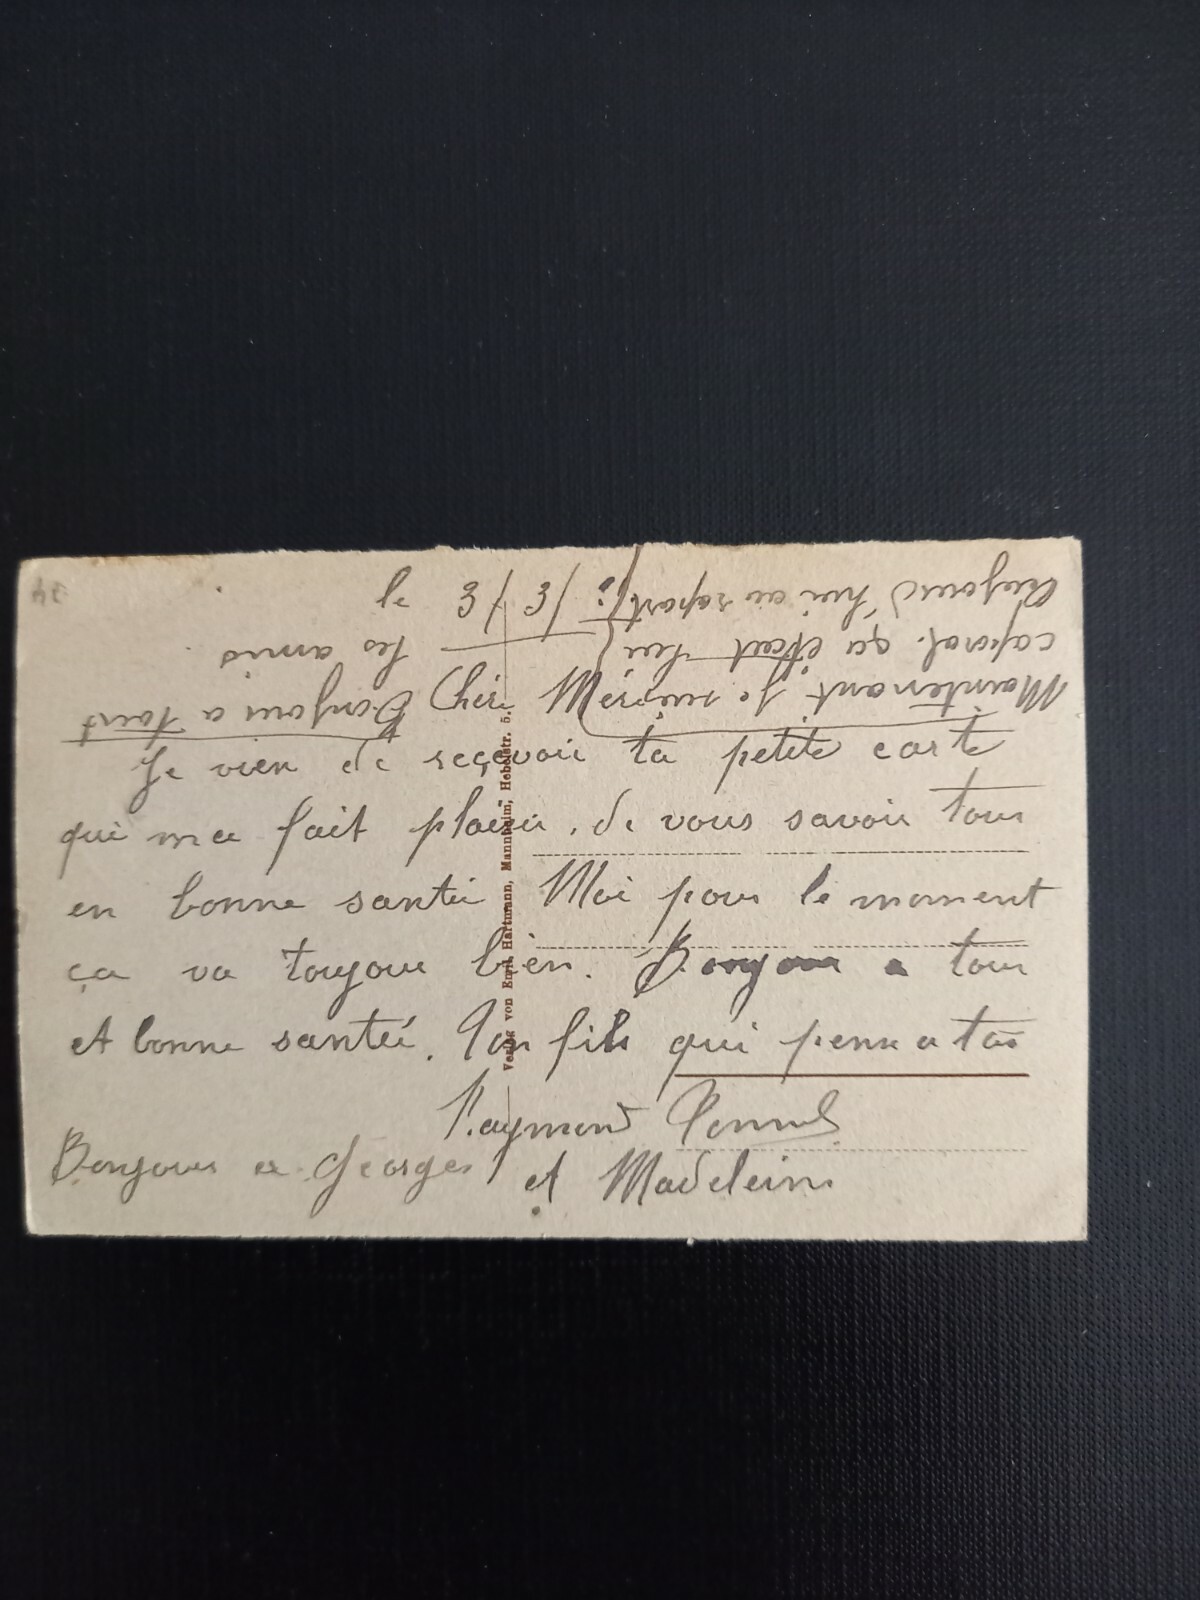 le 3/3/
Chér Mére
Je vien de reçevoir ta petite carte
qui me fait plaisir, de vous savoir tous
en bonne santée Moi pour le moment
ça va toujour bien. Bonjour a tous
et bonne santée. Ton fils qui pense a toi
Raymond
Bonjour a Georges et Madeleine
Maintenant Je suis
caporal. ça était lui
Aujourd'hui au raport
Bonjour a tous
les amis
Verlag von Emil Hartmann, Mannheim, Hebelstr. 5.
34